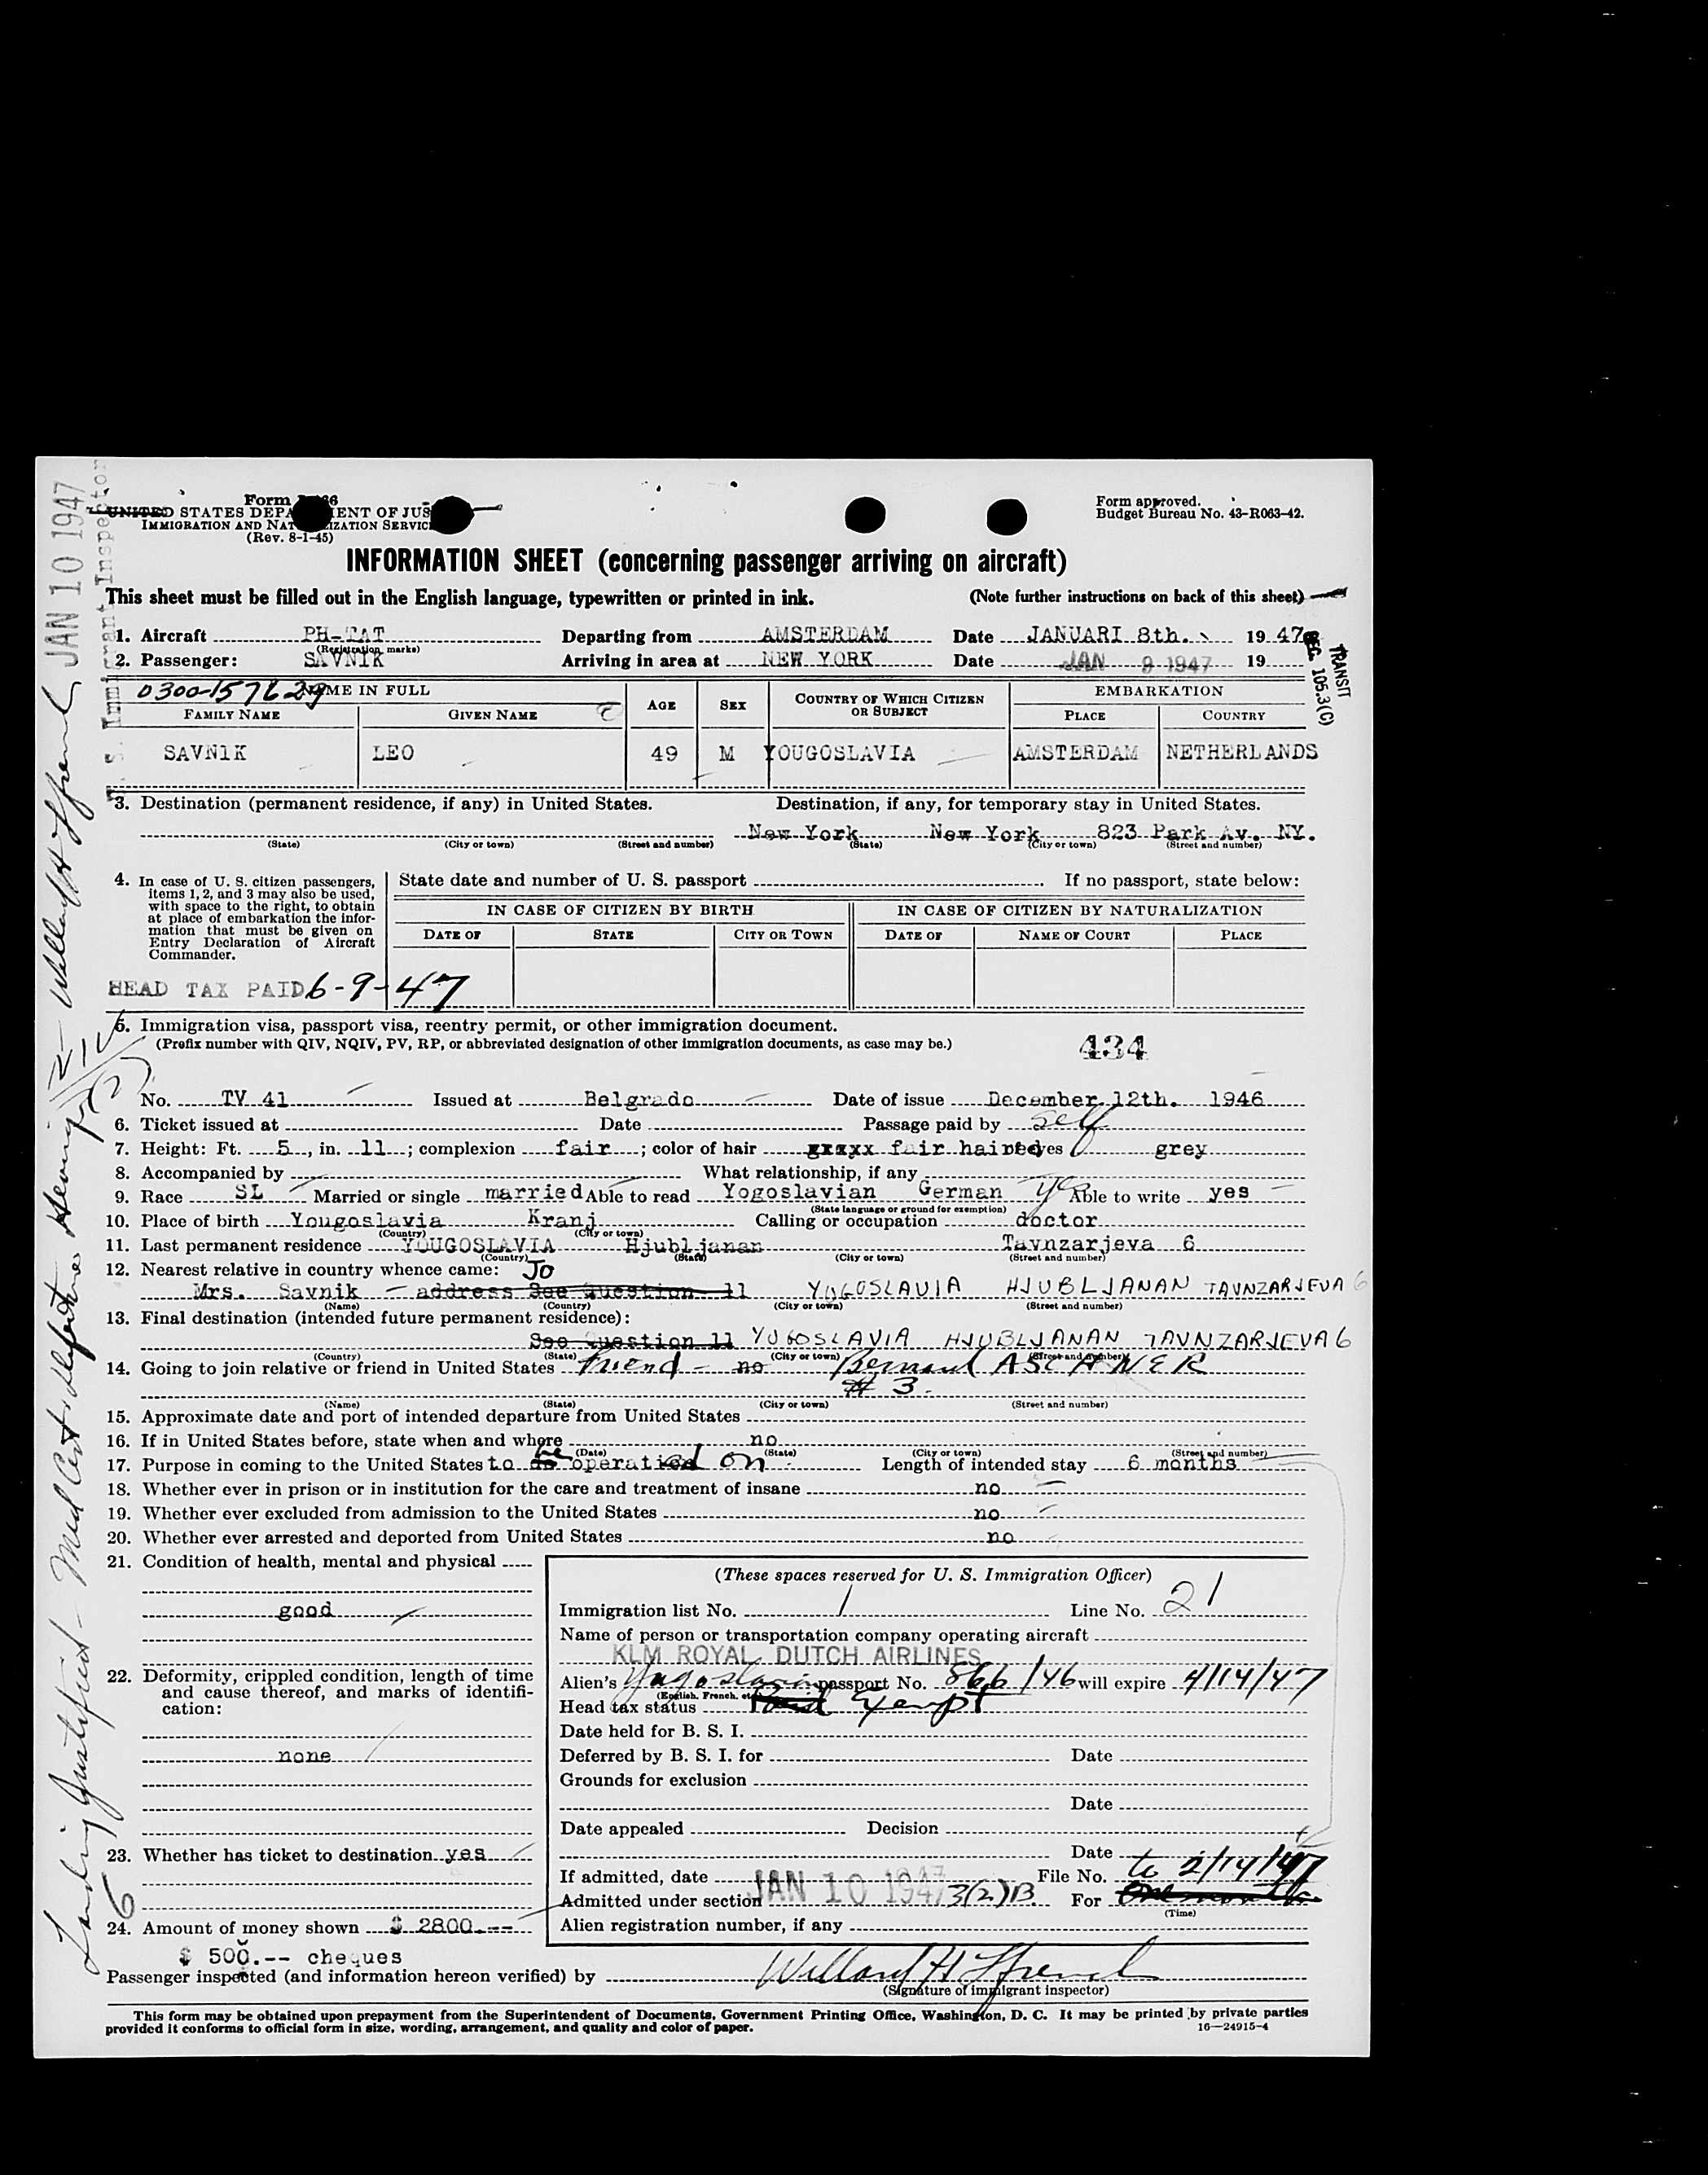 Form
Form approved.
UNITED STATES DEPA ENT OF JUS
Budget Bureau No. 43-R063-42.
IMMIGRATION AND NAT IZATION SERVIC
(Rev. 8-1-45)
INFORMATION SHEET (concerning passenger arriving on aircraft)
This sheet must be filled out in the English language, typewritten or printed in ink. (Note further instructions on back of this sheet)
1. Aircraft PH-TAT Departing from AMSTERDAM Date JANUARI 8th. 19 47
(Registration marks)
2. Passenger: SAVNIK Arriving in area at NEW YORK Date JAN 9 1947 19
TRANSIT
SEC. 105.3(C)
0300-157629 NAME IN FULL AGE SEX COUNTRY OF WHICH CITIZEN OR SUBJECT EMBARKATION
FAMILY NAME GIVEN NAME PLACE COUNTRY
SAVN1K LEO 49 M YOUGOSLAVIA AMSTERDAM NETHERLANDS
3. Destination (permanent residence, if any) in United States. Destination, if any, for temporary stay in United States.
New York New York 823 Park Av. NY.
(State) (City or town) (Street and number) (State) (City or town) (Street and number)
4. In case of U. S. citizen passengers, items 1, 2, and 3 may also be used, with space to the right, to obtain at place of embarkation the information that must be given on Entry Declaration of Aircraft Commander.
State date and number of U. S. passport If no passport, state below:
IN CASE OF CITIZEN BY BIRTH IN CASE OF CITIZEN BY NATURALIZATION
DATE OF STATE CITY OR TOWN DATE OF NAME OF COURT PLACE
HEAD TAX PAID 6-9-47
5. Immigration visa, passport visa, reentry permit, or other immigration document.
(Prefix number with QIV, NQIV, PV, RP, or abbreviated designation of other immigration documents, as case may be.) 434
No. TV 41 Issued at Belgrado Date of issue December 12th. 1946
6. Ticket issued at Date Passage paid by self
7. Height: Ft. 5, in. 11; complexion fair; color of hair fair haired eyes grey
8. Accompanied by What relationship, if any
9. Race SL Married or single married Able to read Yogoslavian German yes Able to write yes
(State language or ground for exemption)
10. Place of birth Yougoslavia Kranj Calling or occupation doctor
(Country) (City or town)
11. Last permanent residence YOUGOSLAVIA Hjubljanan Tavnzarjeva 6
(Country) (State) (City or town) (Street and number)
12. Nearest relative in country whence came: Jo
Mrs. Savnik - address See Question 11 YUGOSLAVIA HJUBLJANAN TAVNZARJEVA 6
(Name) (Country) (City or town) (Street and number)
13. Final destination (intended future permanent residence):
See Question 11 YUGOSLAVIA HJUBLJANAN TAVNZARJEVA 6
(Country) (State) (City or town) (Street and number)
14. Going to join relative or friend in United States Friend - no Bernard ASCHNER
# 3.
(Name) (State) (City or town) (Street and number)
15. Approximate date and port of intended departure from United States
16. If in United States before, state when and where no
(Date) (State) (City or town) (Street and number)
17. Purpose in coming to the United States to be operated on Length of intended stay 6 months
18. Whether ever in prison or in institution for the care and treatment of insane no
19. Whether ever excluded from admission to the United States no
20. Whether ever arrested and deported from United States no
21. Condition of health, mental and physical
good
22. Deformity, crippled condition, length of time and cause thereof, and marks of identification:
none
23. Whether has ticket to destination yes
24. Amount of money shown $ 2800.--
$ 500.-- cheques
(These spaces reserved for U. S. Immigration Officer)
Immigration list No. 1 Line No. 21
Name of person or transportation company operating aircraft
KLM ROYAL DUTCH AIRLINES
Alien's Yugoslavia passport No. 866/46 will expire 4/14/47
(English, French, etc.)
Head tax status Paid Exempt
Date held for B. S. I.
Deferred by B. S. I. for Date
Grounds for exclusion
Date
Date appealed Decision
Date
If admitted, date JAN 10 1947 File No. to 2/14/47
Admitted under section 3(2)B. For One month
(Time)
Alien registration number, if any
Passenger inspected (and information hereon verified) by Willard H Ffrench
(Signature of immigrant inspector)
This form may be obtained upon prepayment from the Superintendent of Documents, Government Printing Office, Washington, D. C. It may be printed by private parties
provided it conforms to official form in size, wording, arrangement, and quality and color of paper. 16—24915-4
JAN 10 1947
Immigrant Inspector
Landing Justified - Med Cert.
Willard H Ffrench
6